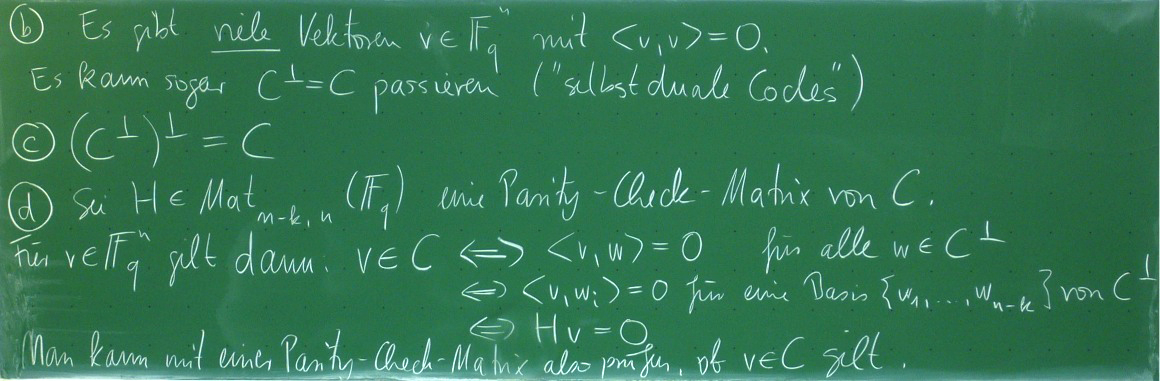 ⓑ Es gibt viele Vektoren v ∈ 𝔽_q^n mit <v,v> = 0.
Es kann sogar C^⊥ = C passieren ("selbstduale Codes")
ⓒ (C^⊥)^⊥ = C
ⓓ Sei H ∈ Mat_{n-k,n} (𝔽_q) eine Parity-Check-Matrix von C.
Für v ∈ 𝔽_q^n gilt dann: v ∈ C ⇔ <v,w> = 0 für alle w ∈ C^⊥
⇔ <v,w_i> = 0 für eine Basis {w_1,...,w_{n-k}} von C^⊥
⇔ Hv = 0
Man kann mit einer Parity-Check-Matrix also prüfen, ob v ∈ C gilt.